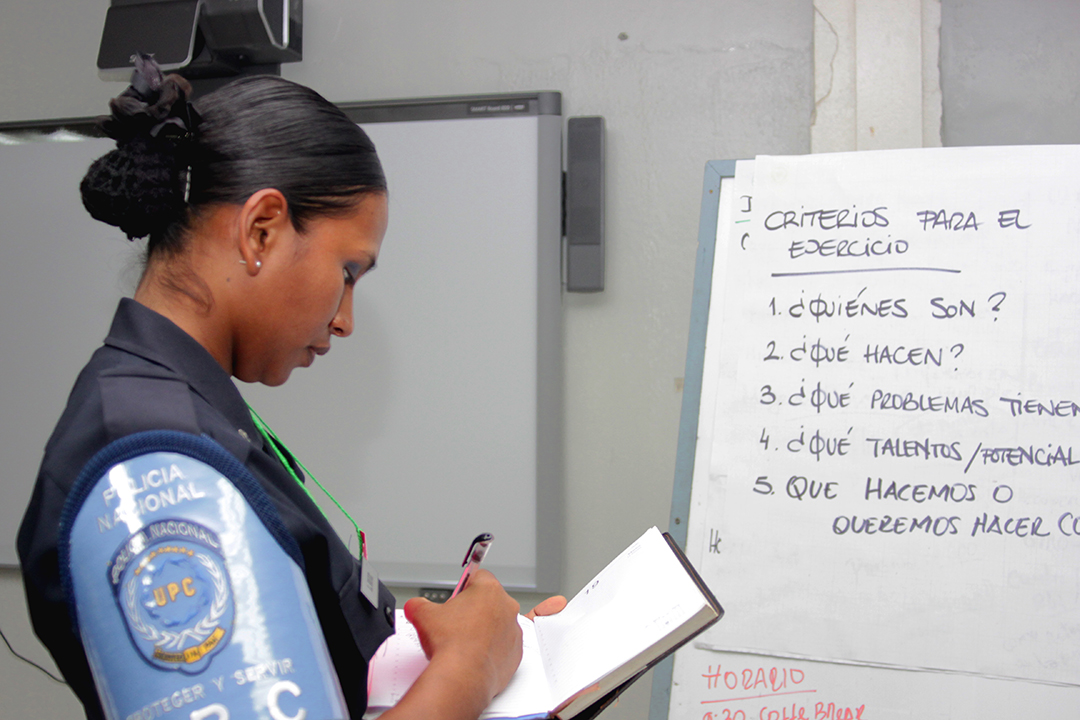 CRITERIOS PARA EL
EJERCICIO
1. ¿QUIÉNES SON?
2. ¿QUÉ HACEN?
3. ¿QUÉ PROBLEMAS TIENEN
4. ¿QUÉ TALENTOS/POTENCIAL
5. QUE HACEMOS O
QUEREMOS HACER
HORARIO
POLICIA
NACIONAL
POLICIA NACIONAL
UPC
PROTEGER Y SERVIR
PC